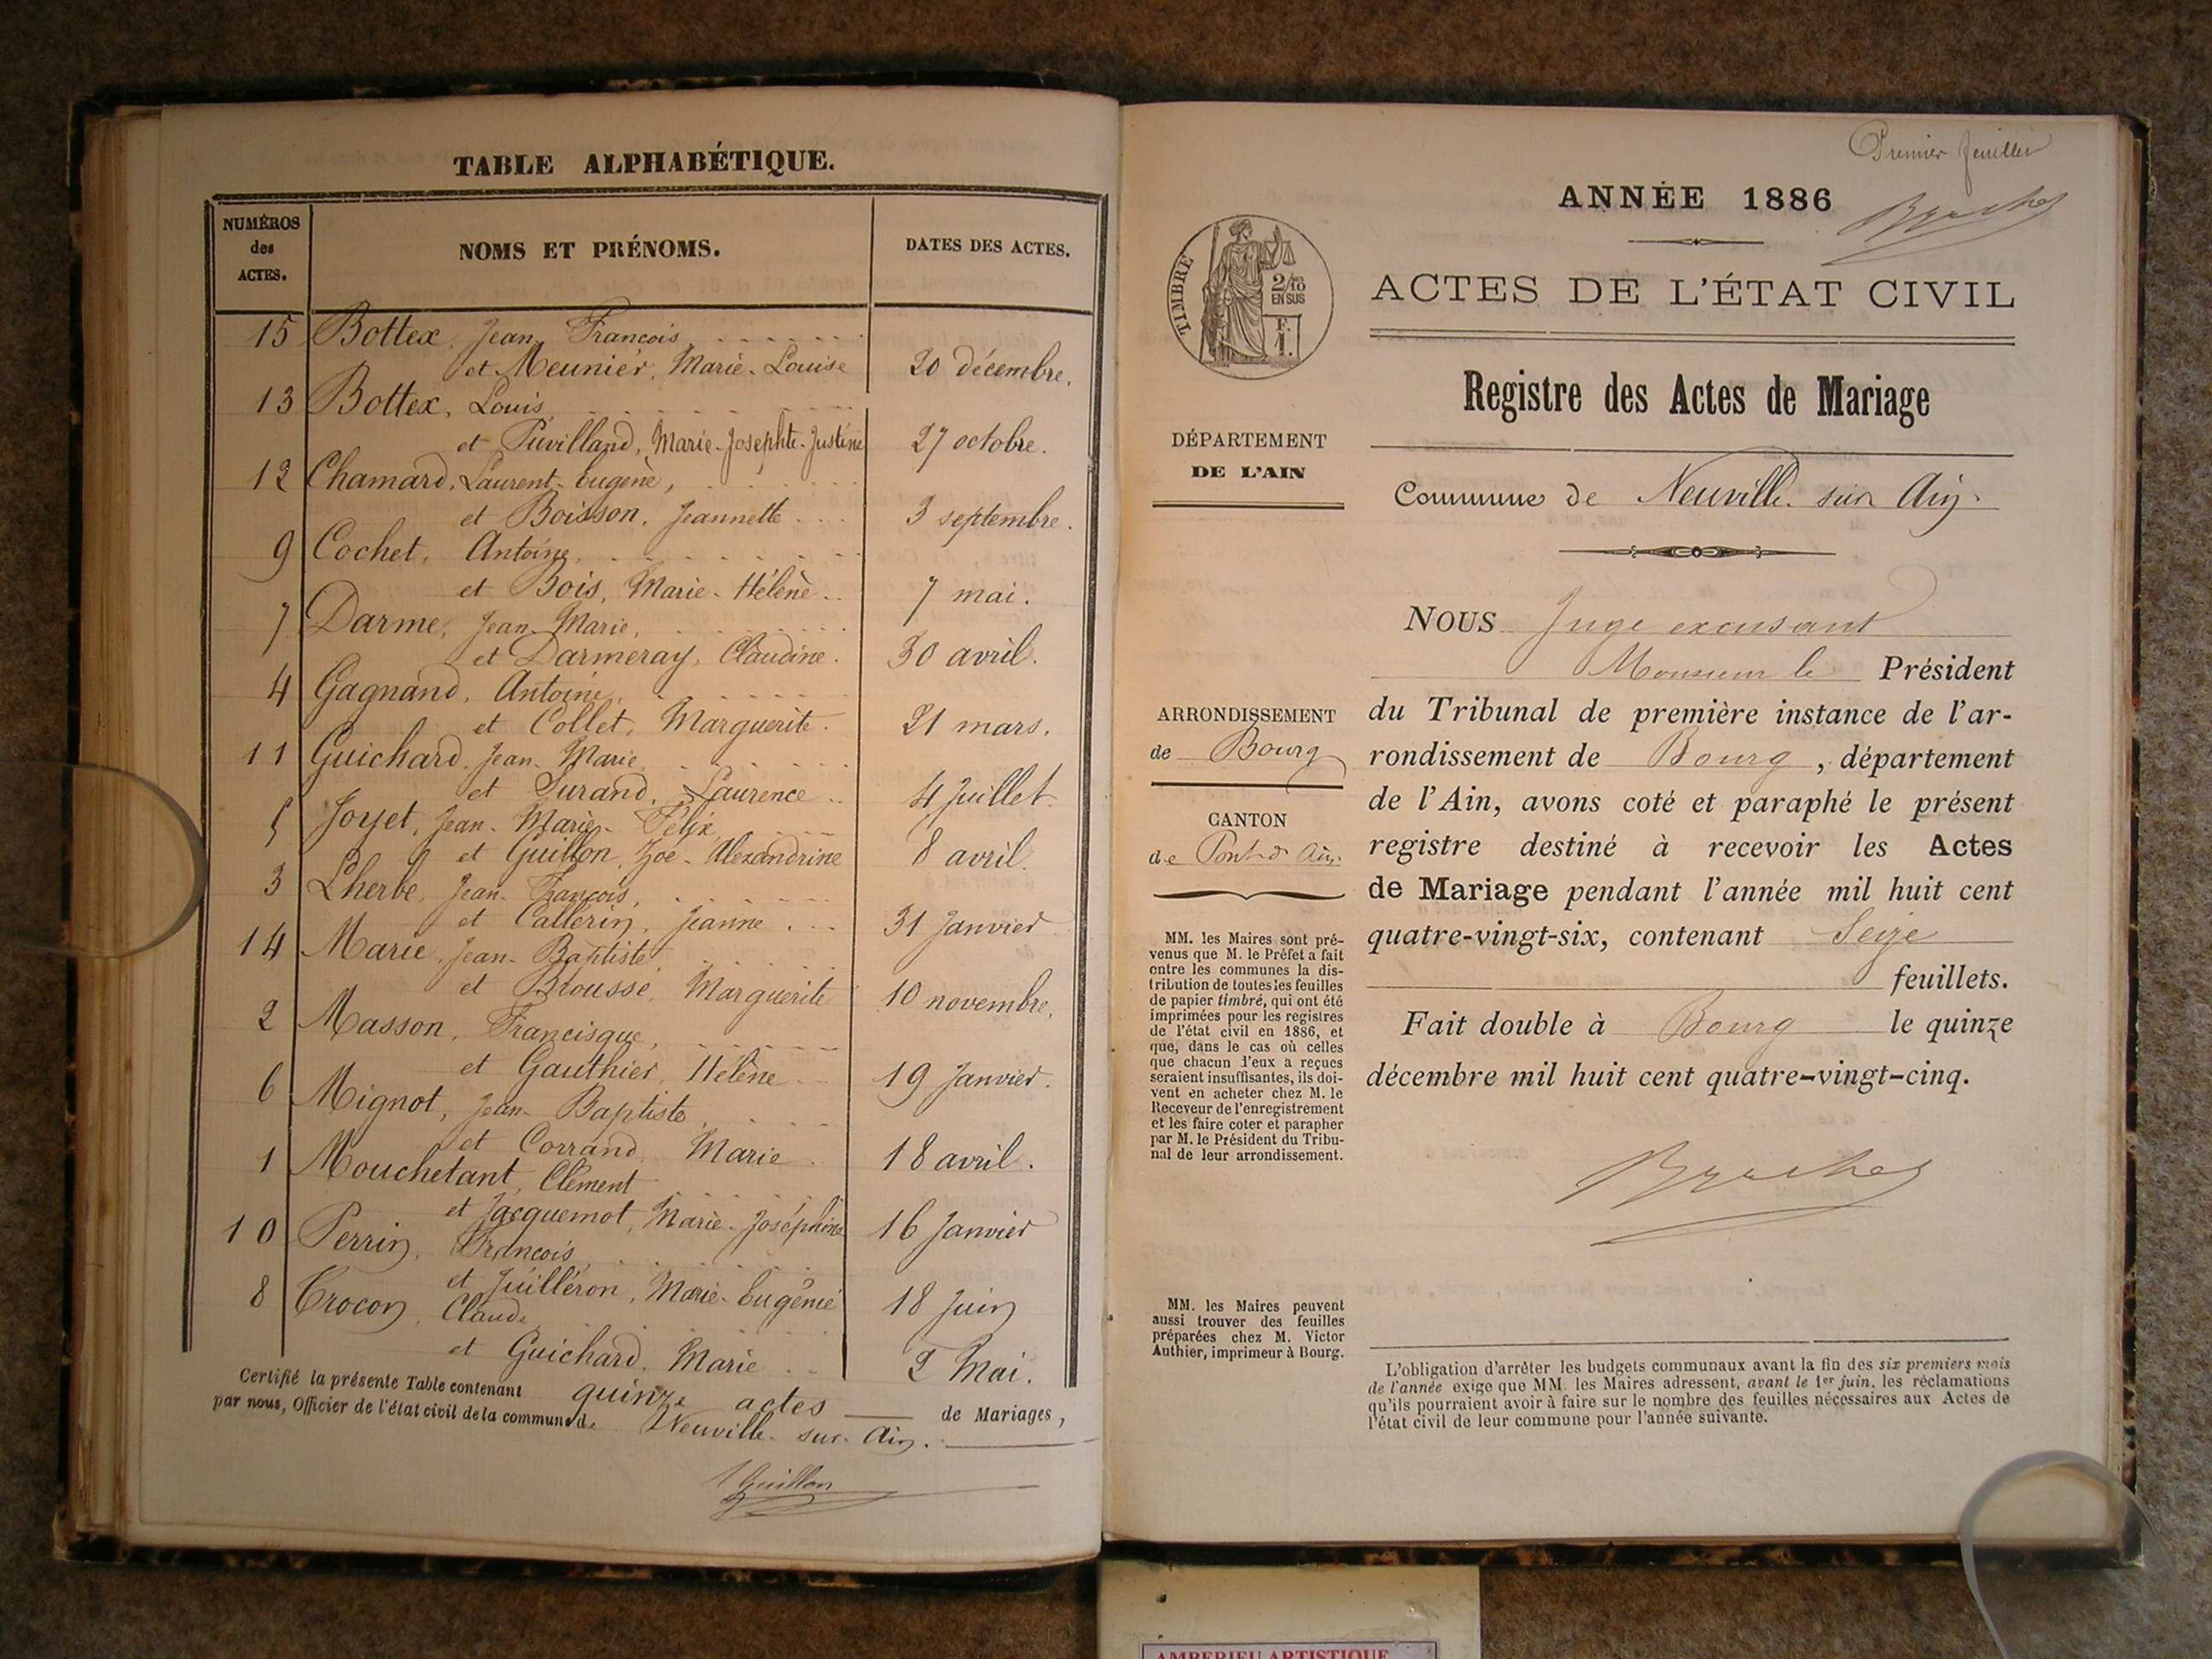 TABLE ALPHABÉTIQUE.
NUMÉROS
des
ACTES.
NOMS ET PRÉNOMS.
DATES DES ACTES.
15 Bottex, Jean François
et Meunier, Marie-Louise 20 décembre.
13 Bottex, Louis
et Puvilland, Marie-Josephte-Justine 27 octobre.
12 Chamard, Laurent-Eugène,
et Boisson, Jeannette 3 septembre.
9 Cochet, Antoine
et Bois, Marie-Hélène 7 mai.
7 Darme, Jean-Marie,
et Darmeray, Claudine. 30 avril.
4 Gagnand, Antoine,
et Collet, Marguerite. 21 mars.
11 Guichard, Jean-Marie
et Surand, Laurence 4 Juillet
5 Joyet, Jean-Marie-Félix
et Guillon, Zoé-Alexandrine 8 avril.
3 Lherbe, Jean-François,
et Callerin, Jeanne 31 Janvier
14 Marie, Jean-Baptiste
et Brousse, Marguerite 10 novembre.
2 Masson, Francisque,
et Gauthier, Hélène 19 Janvier.
6 Mignot, Jean-Baptiste
et Corrand, Marie 18 avril.
1 Mouchetant, Clément
et Jacquemot, Marie-Joséphine 16 Janvier
10 Perrin, François
et Juilléron, Marie-Eugénie 18 Juin
8 Crocon, Claude
et Guichard, Marie 2 Mai.
Certifié la présente Table contenant quinze actes de Mariages,
par nous, Officier de l'état civil de la commune de Neuville-sur-Ain.
Guillon
Premier feuillet
ANNÉE 1886
TIMBRE
2/10
EN SUS
F.
1.
ACTES DE L'ÉTAT CIVIL
Registre des Actes de Mariage
DÉPARTEMENT
DE L'AIN
Commune de Neuville sur Ain.
NOUS Juge excusant
Monsieur le Président
du Tribunal de première instance de l'ar-
rondissement de Bourg, département
de l'Ain, avons coté et paraphé le présent
registre destiné à recevoir les Actes
de Mariage pendant l'année mil huit cent
quatre-vingt-six, contenant Seize
feuillets.
Fait double à Bourg le quinze
décembre mil huit cent quatre-vingt-cinq.
ARRONDISSEMENT
de Bourg
CANTON
de Pont-d'Ain.
MM. les Maires sont pré-
venus que M. le Préfet a fait
entre les communes la dis-
tribution de toutes les feuilles
de papier timbré, qui ont été
imprimées pour les registres
de l'état civil en 1886, et
que, dans le cas où celles
que chacun d'eux a reçues
seraient insuffisantes, ils doi-
vent en acheter chez M. le
Receveur de l'enregistrement
et les faire coter et parapher
par M. le Président du Tribu-
nal de leur arrondissement.
MM. les Maires peuvent
aussi trouver des feuilles
préparées chez M. Victor
Authier, imprimeur à Bourg.
L'obligation d'arrêter les budgets communaux avant la fin des six premiers mois
de l'année exige que MM. les Maires adressent, avant le 1er juin, les réclamations
qu'ils pourraient avoir à faire sur le nombre des feuilles nécessaires aux Actes de
l'état civil de leur commune pour l'année suivante.
AMBERIEU ARTISTIQUE